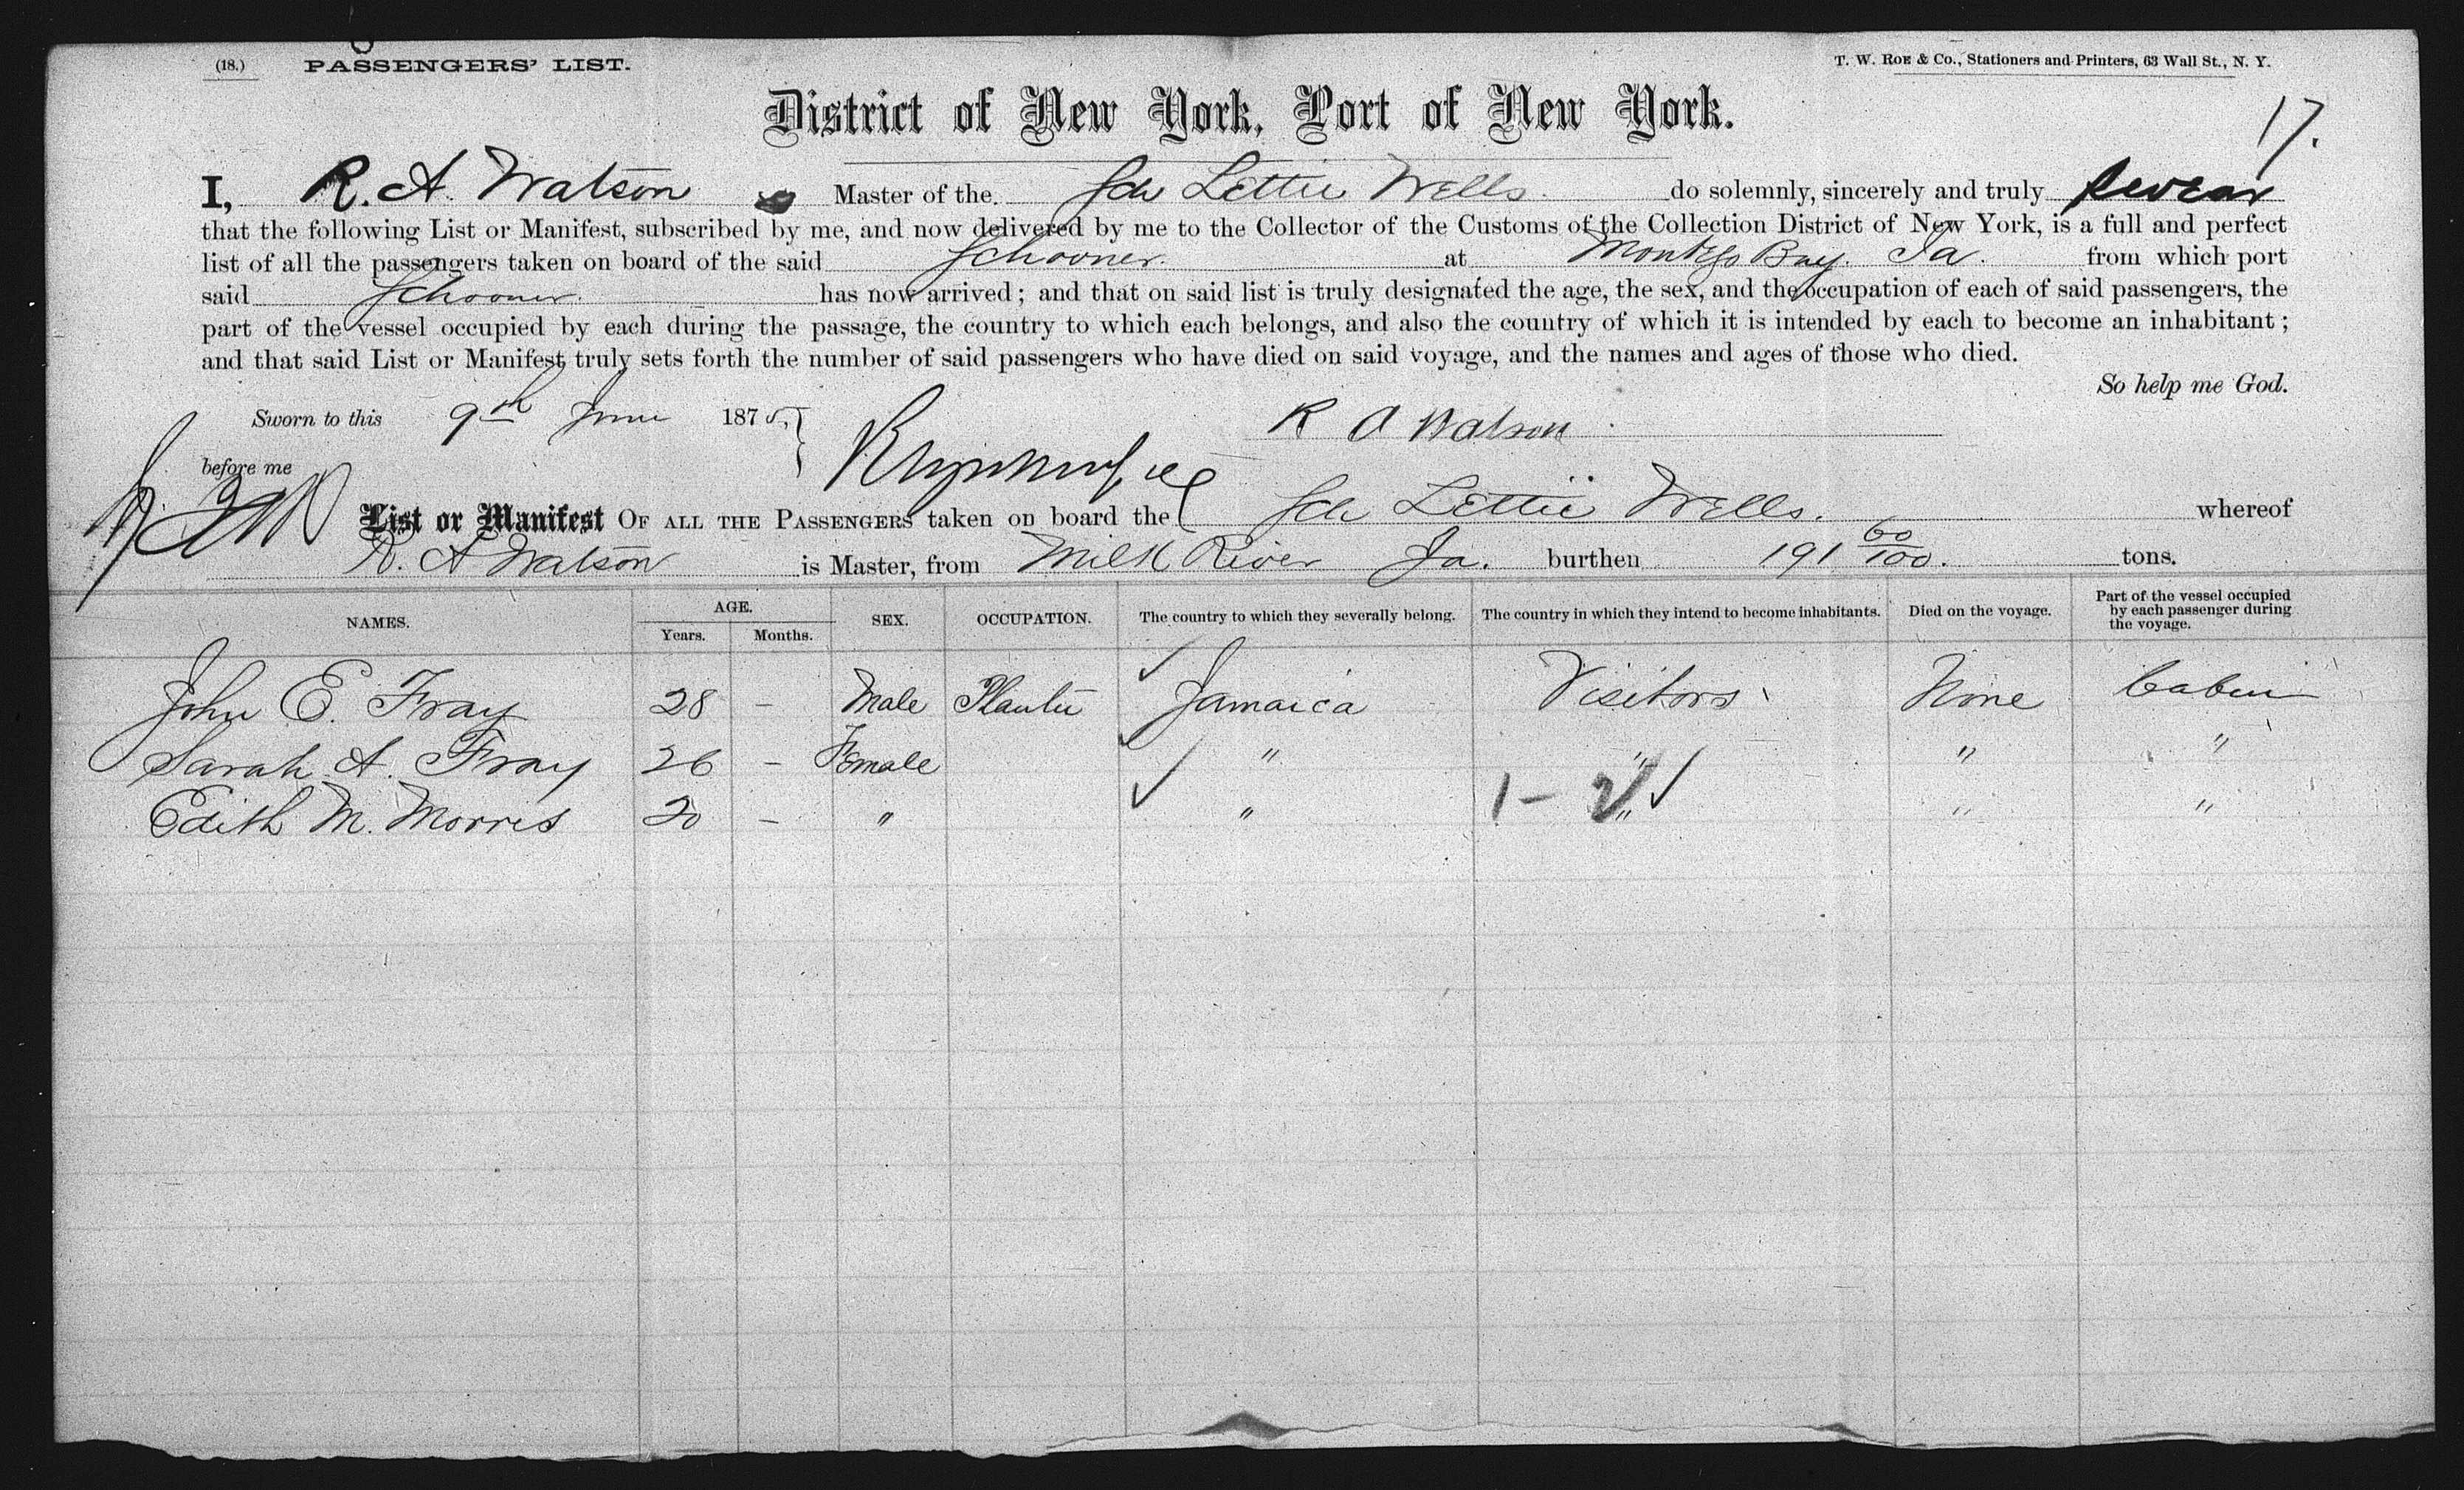 (18.) PASSENGERS' LIST. T. W. ROE & Co., Stationers and Printers, 63 Wall St., N. Y.
District of New York, Port of New York.
17.
I, R. A. Watson Master of the Sch Lettie Wells. do solemnly, sincerely and truly swear
that the following List or Manifest, subscribed by me, and now delivered by me to the Collector of the Customs of the Collection District of New York, is a full and perfect
list of all the passengers taken on board of the said Schooner. at Montego Bay. Ja. from which port
said Schooner. has now arrived; and that on said list is truly designated the age, the sex, and the occupation of each of said passengers, the
part of the vessel occupied by each during the passage, the country to which each belongs, and also the country of which it is intended by each to become an inhabitant;
and that said List or Manifest truly sets forth the number of said passengers who have died on said voyage, and the names and ages of those who died.
So help me God.
Sworn to this 9th June 1875, R A Watson
before me
List or Manifest OF ALL THE PASSENGERS taken on board the Sch Lettie Wells. whereof
R. A Watson is Master, from Milk River Ja. burthen 191 60/100. tons.
NAMES. AGE. Years. Months. SEX. OCCUPATION. The country to which they severally belong. The country in which they intend to become inhabitants. Died on the voyage. Part of the vessel occupied by each passenger during the voyage.
John E. Fray 28 – Male Planter Jamaica Visitors None Cabin
Sarah A. Fray 26 – Female " " " "
Edith M. Morris 20 – " " 1 – 2 " " "